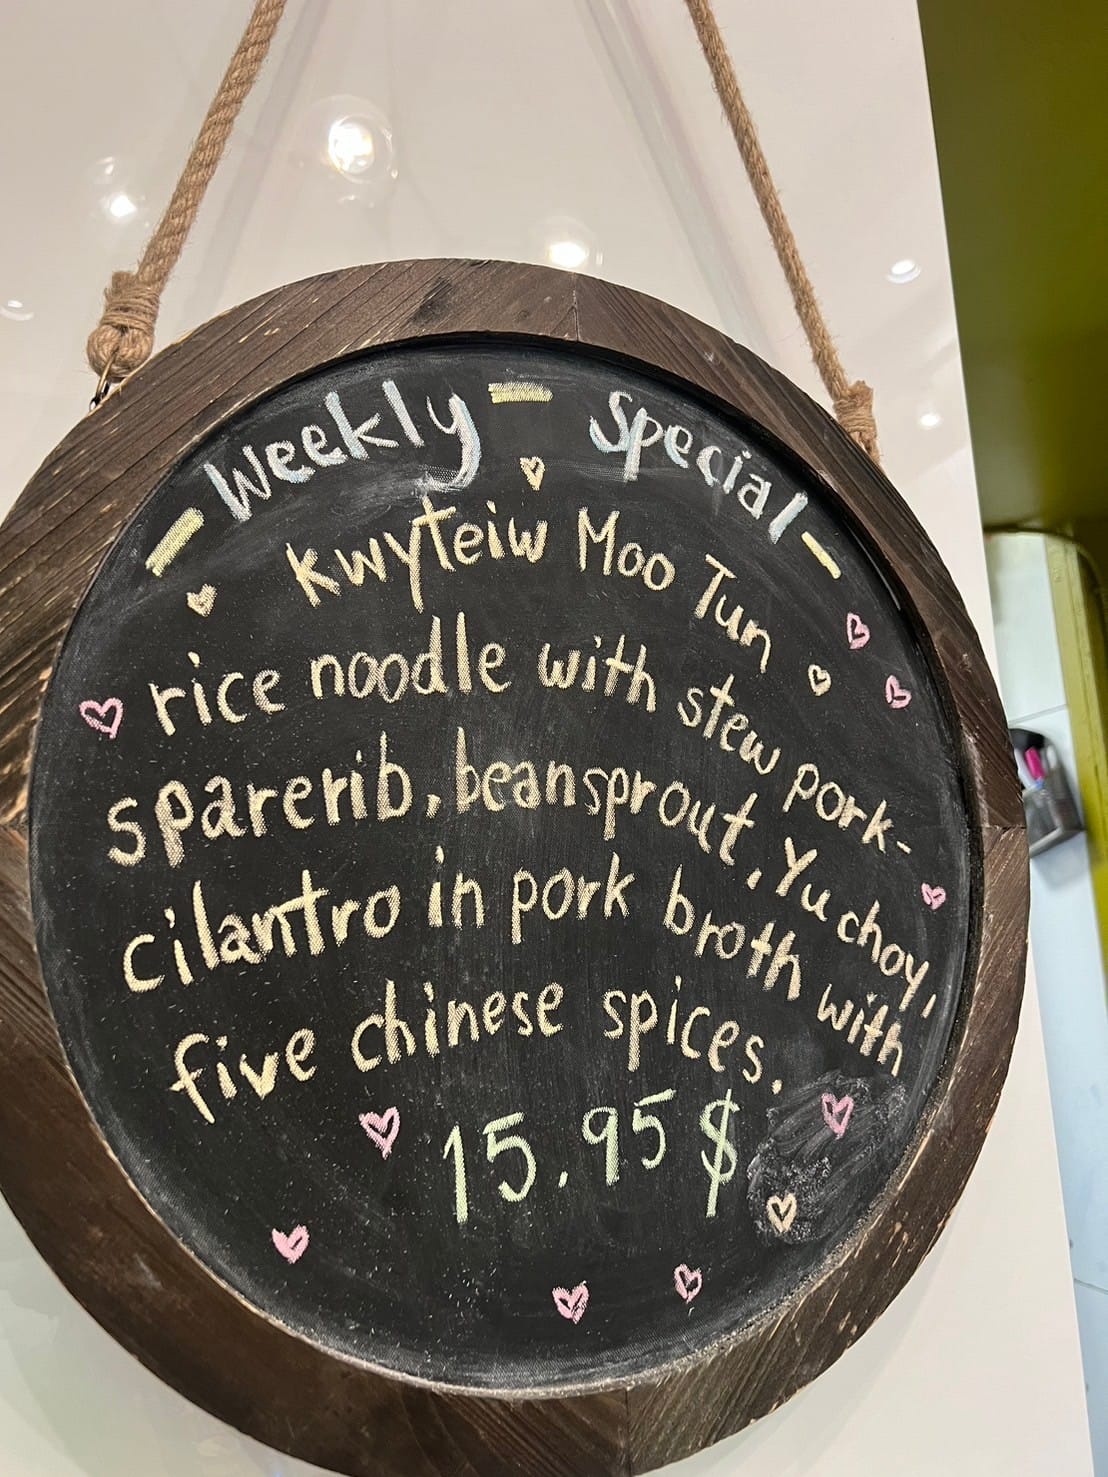 - Weekly - Special -
Kwyteiw Moo Tun
rice noodle with stew pork-
sparerib, beansprout, Yu choy,
cilantro in pork broth with
five chinese spices.
15.95 $